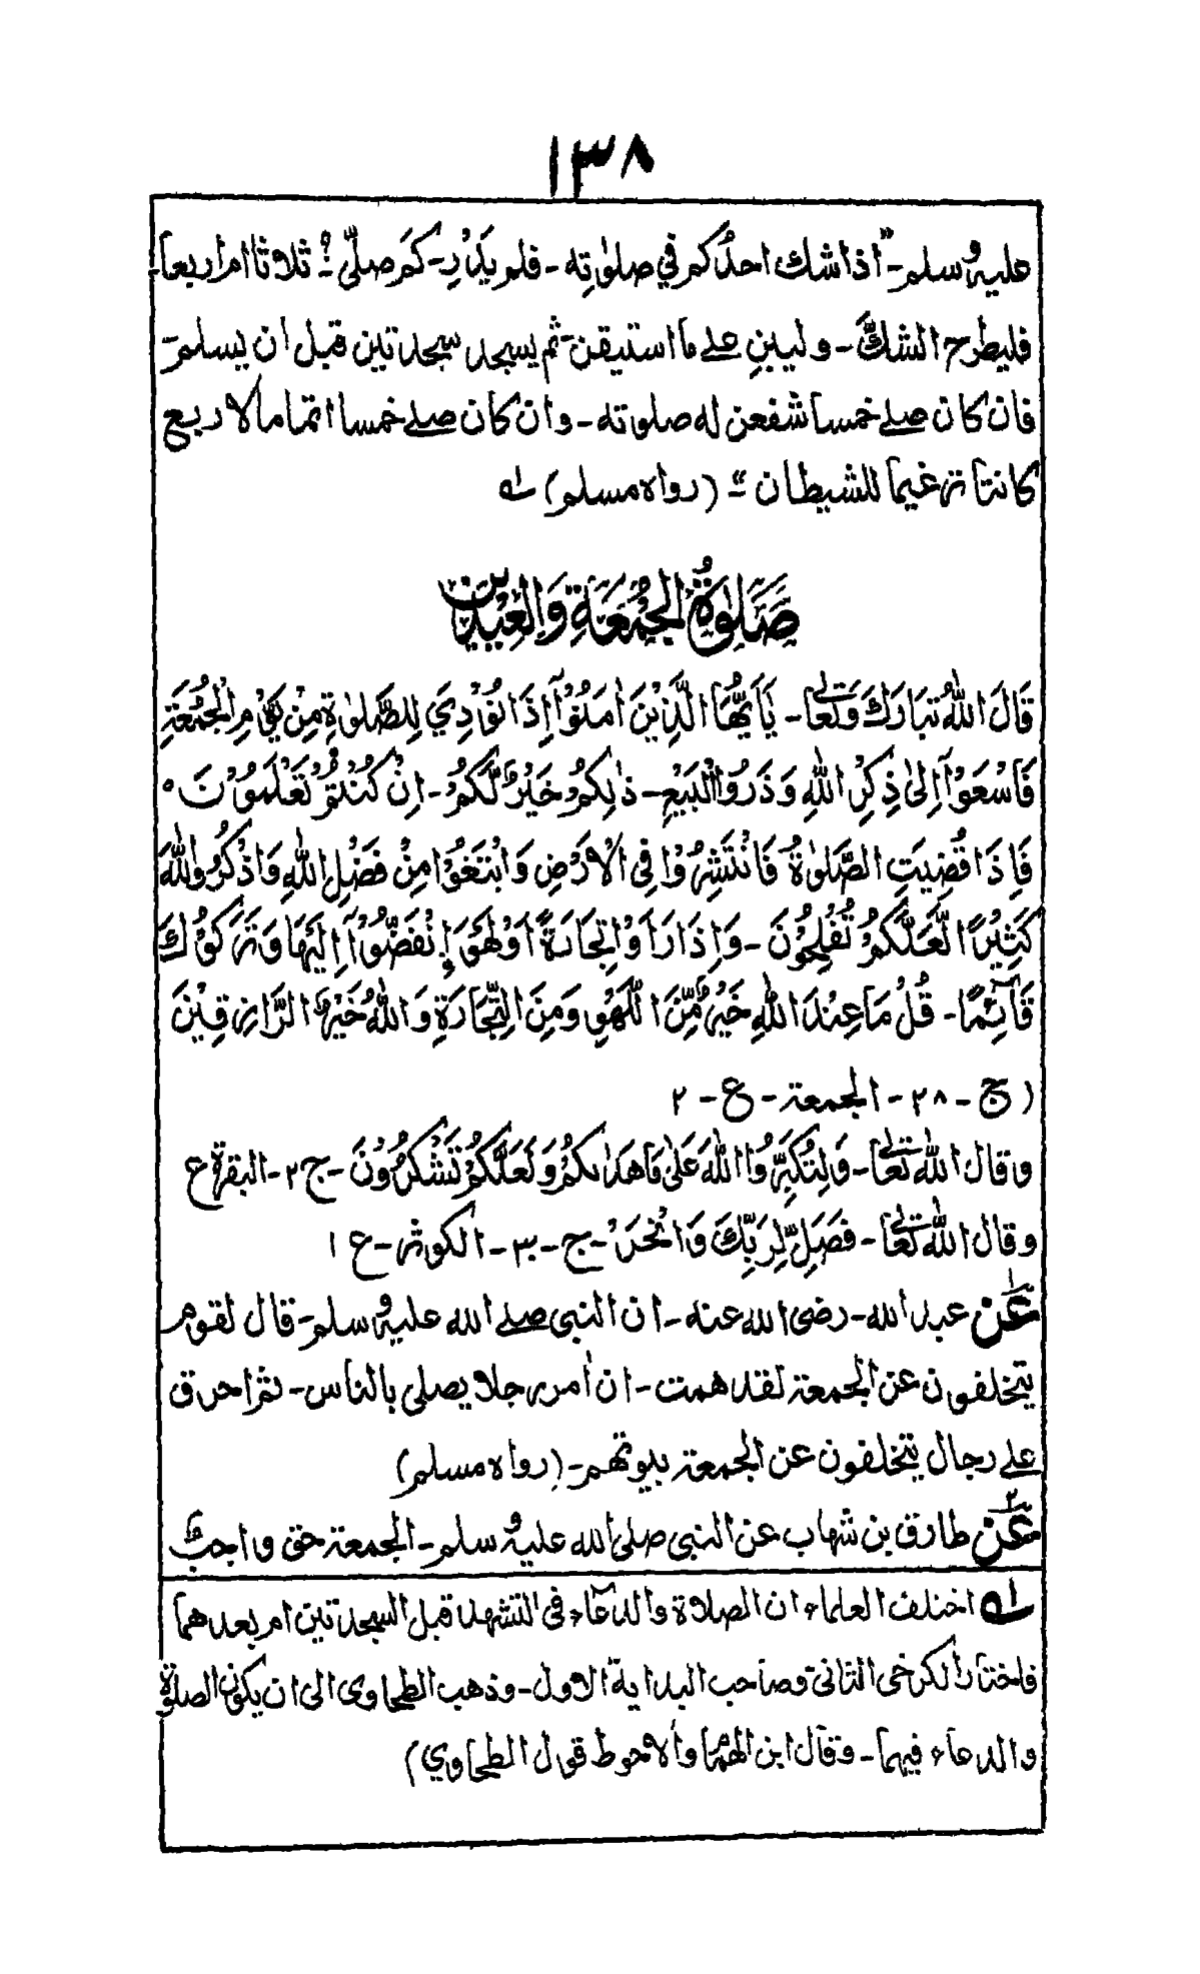 ١٣٨
عليه وسلم - "اذا شك احدُكم في صلوٰتِه - فلم يَدْرِ - كَم صلّٰى؟ ثلاثا ام اربعا
فليطرح الشكَّ - وليبنِ علے ما استيقن - ثم يسجد سجدتين قبل ان يسلم -
فان كان صلے خمسا شفعن له صلوته - وان كان صلے خمسا اتماما لاربع
كانتا ترغيما للشيطان" - (رواه مسلم) لـه
صَلٰوةُ الجُمُعَةِ وَالْعِيْدَيْنِ
قَالَ اللهُ تَبَارَكَ وَتَعَالٰى - يَآ اَيُّهَا الَّذِيْنَ اٰمَنُوْآ اِذَا نُوْدِيَ لِلصَّلوٰةِ مِنْ يَّوْمِ الْجُمُعَةِ
فَاسْعَوْآ اِلىٰ ذِكْرِ اللهِ وَذَرُوا الْبَيْعَ - ذٰلِكُمْ خَيْرٌ لَّكُمْ - اِنْ كُنْتُمْ تَعْلَمُوْنَ ه
فَاِذَا قُضِيَتِ الصَّلوٰةُ فَانْتَشِرُوْا فِى الْاَرْضِ وَابْتَغُوْا مِنْ فَضْلِ اللهِ وَاذْكُرُوا اللهَ
كَثِيْرًا لَّعَلَّكُمْ تُفْلِحُوْنَ - وَاِذَا رَاَوْا تِجَارَةً اَوْ لَهْوَ اِنْفَضُّوْآ اِلَيْهَا وَتَرَكُوْكَ
قَآئِمًا - قُلْ مَا عِنْدَ اللهِ خَيْرٌ مِّنَ اللَّهْوِ وَمِنَ التِّجَارَةِ وَاللهُ خَيْرُ الرَّازِقِيْنَ
(ج - ٢٨ - الجمعة - ع - ٢
وقال الله تَعَالٰى - وَلِتُكَبِّرُوا اللهَ عَلىٰ مَا هَدَاىكُمْ وَلَعَلَّكُمْ تَشْكُرُوْنَ - ج ٢ - البقرة ع
وقال الله تَعَالٰى - فَصَلِّ لِرَبِّكَ وَانْحَرْ - ج - ٣٠ - الكوثر - ع ١
عَنْ ١ عبد الله - رضى الله عنه - ان النبى صلے الله عليه وسلم - قال لقوم
يتخلفون عن الجمعة لقد هممت - ان اٰمر رجلا يصلى بالناس - ثم احرق
علے رجال يتخلفون عن الجمعة بيوتهم - (رواه مسلم)
عَنْ ٢ طارق بن شهاب عن النبى صلى الله عليه وسلم - الجمعة حق واجبٌ
لـه اختلف العلماء ان الصلاة والدعآء فى التشهد قبل السجدتين ام بعدهما
فاختار الكرخى الثانى وصاحب البداية الاول - وذهب الطحاوى الى ان يكون الصلوٰة
والدعاء فيهما - وقال ابن الهمام والاحوط قول الطحاوي)